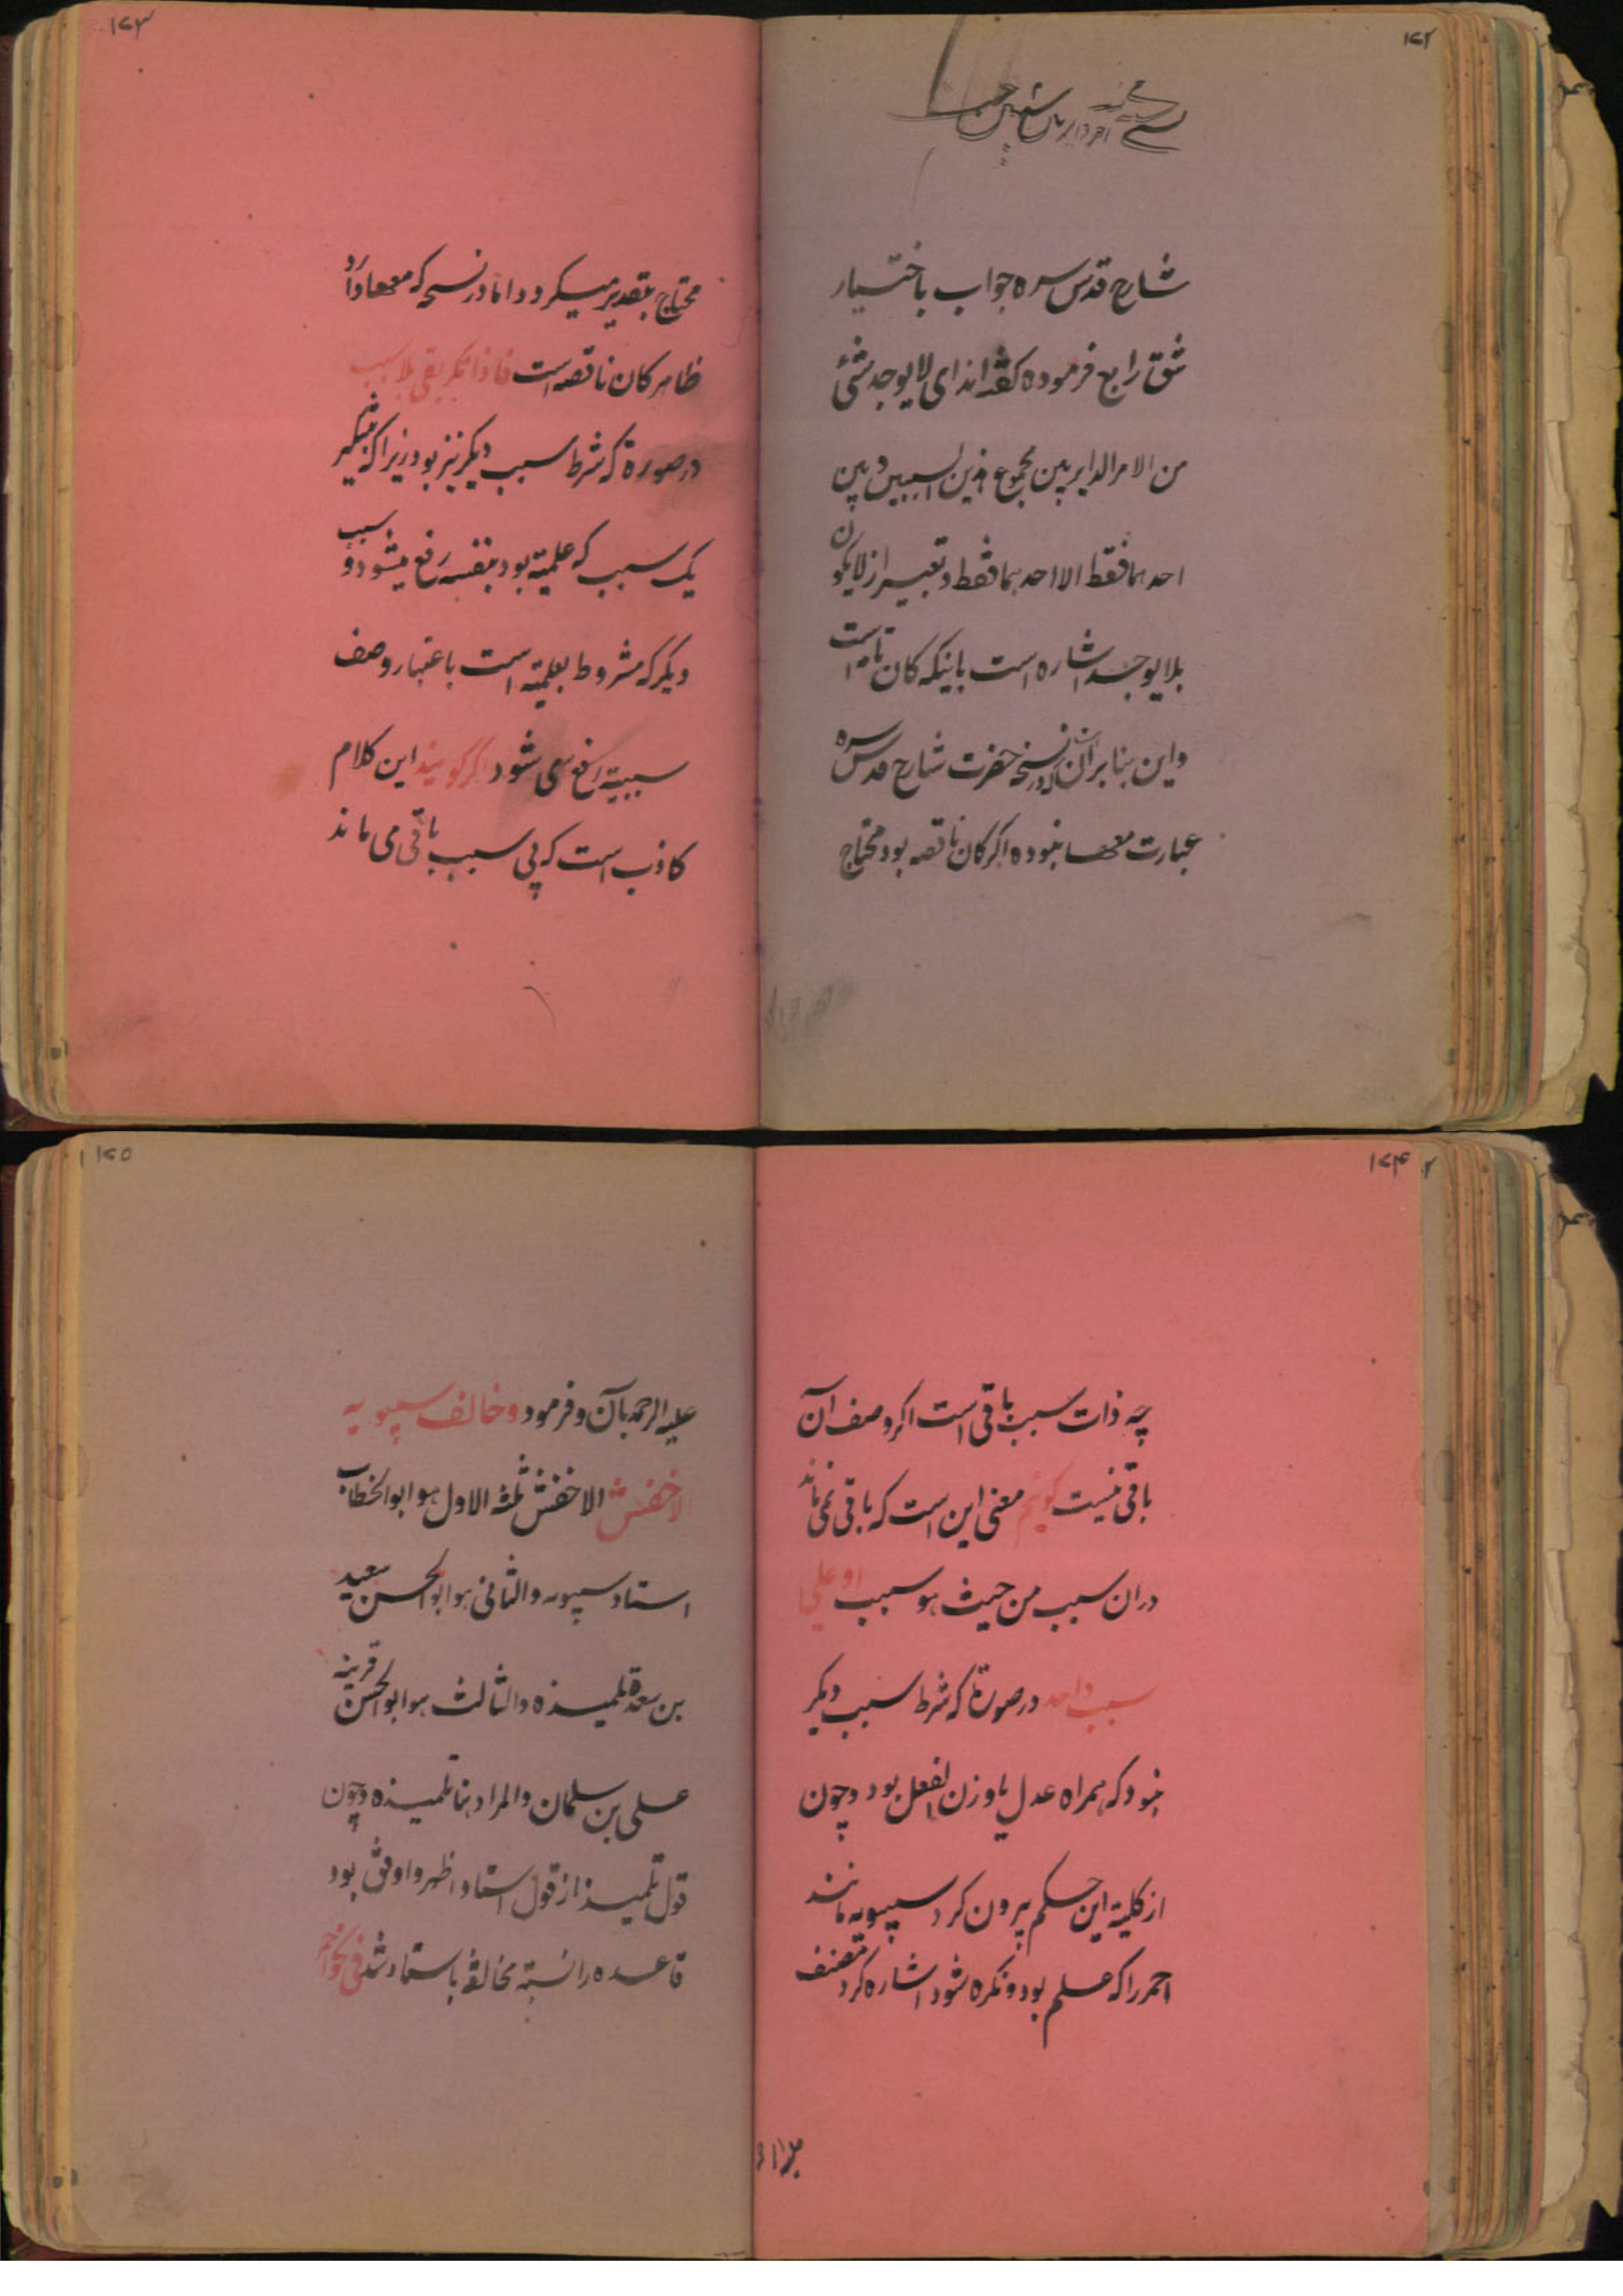 ۱۷۲
شارح قدس سره جواب باختیار
شق رابع فرموده گفته اند ای لا یوجد شئ
من الامر الدایر بین مجموع هذین السببین و بین
احدهما فقط الا احدهما فقط و تعبیر از لا یکون
بلا یوجد اشاره است باینکه کان تامه است
و این بنا بر آن که در نسخه حضرت شارح قدس سره
عبارت معها نبوده اگر کان ناقصه بود محتاج
۱۷۳
محتاج بتقدیر میگردد اما در نسخه که معها دارد
ظاهر کان ناقصه است فاذا نکر بقی بلا سبب
در صورة که شرط سبب دیگر نیز بود زیرا که بتنکیر
یک سبب که علمیة بود بنفسه رفع میشود و سبب
دیگر که مشروط بعلمیة است باعتبار وصف
سببیة رفع می شود اگر گویند این کلام
کاذب است که بی سبب باقی می ماند
۱۷۴
چه ذات سبب باقی است اگر وصف آن
باقی نیست گویم معنی این است که باقی نمی ماند
دران سبب من حیث هو سبب او علی
سبب واحد در صورتا که شرط سبب دیگر
نبود که همراه عدل یا وزن الفعل بود و چون
از کلیة این حکم بیرون کرد سیبویه مانند
احمر را که علم بود و نکره شود اشاره کرد مصنف
۱۷۵
علیه الرحمه بآن و فرمود و خالف سیبویه
الاخفش الاخفش ثلثه الاول هو ابو الخطاب
استاد سیبویه و الثانی هو ابو الحسن سعید
بن سعدة تلمیذه و الثالث هو ابو الحسن قرینه
علی بن سلمان و المراد هنا تلمیذه و چون
قول تلمیذ از قول استاد اظهر و اوفق بود
قاعده را نسبة مخالفة باستاد شد فی نحو احمر